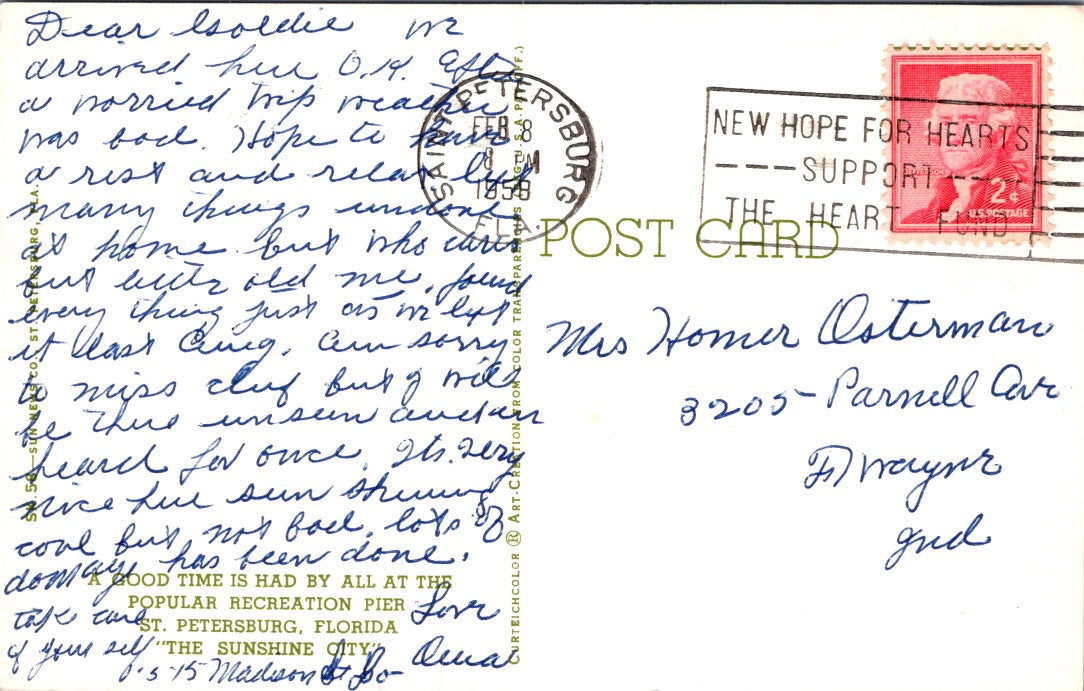 Dear Goldie we
arrived here O.K. after
a worried trip weather
was bad. Hope to have
a rest and relax left
many things undone
at home but who cares
but little old me, found
every thing just as we left
it last Aug. am sorry
to miss club but I will
be there unseen and un
heard for once. Its very
nice here sun shining
cool but not bad, lots of
damage has been done.
take care
of your self
Love
Oma
Madison St So
A GOOD TIME IS HAD BY ALL AT THE
POPULAR RECREATION PIER
ST. PETERSBURG, FLORIDA
"THE SUNSHINE CITY"
SUN NEWS CO., ST. PETERSBURG, FLA.
CURTEICHCOLOR ® ART-CREATION FROM COLOR TRANSPARENCY
SAINT PETERSBURG
FEB 8
8 PM
1958
FLA.
NEW HOPE FOR HEARTS
SUPPORT
THE HEART FUND
2¢
U.S. POSTAGE
POST CARD
Mrs Homer Osterman
3205 Parnell Ave
Ft Wayne
Ind